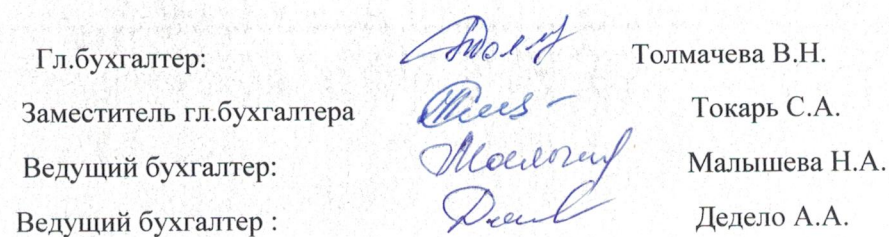 Гл.бухгалтер: Толмачева В.Н.
Заместитель гл.бухгалтера Токарь С.А.
Ведущий бухгалтер: Малышева Н.А.
Ведущий бухгалтер : Дедело А.А.